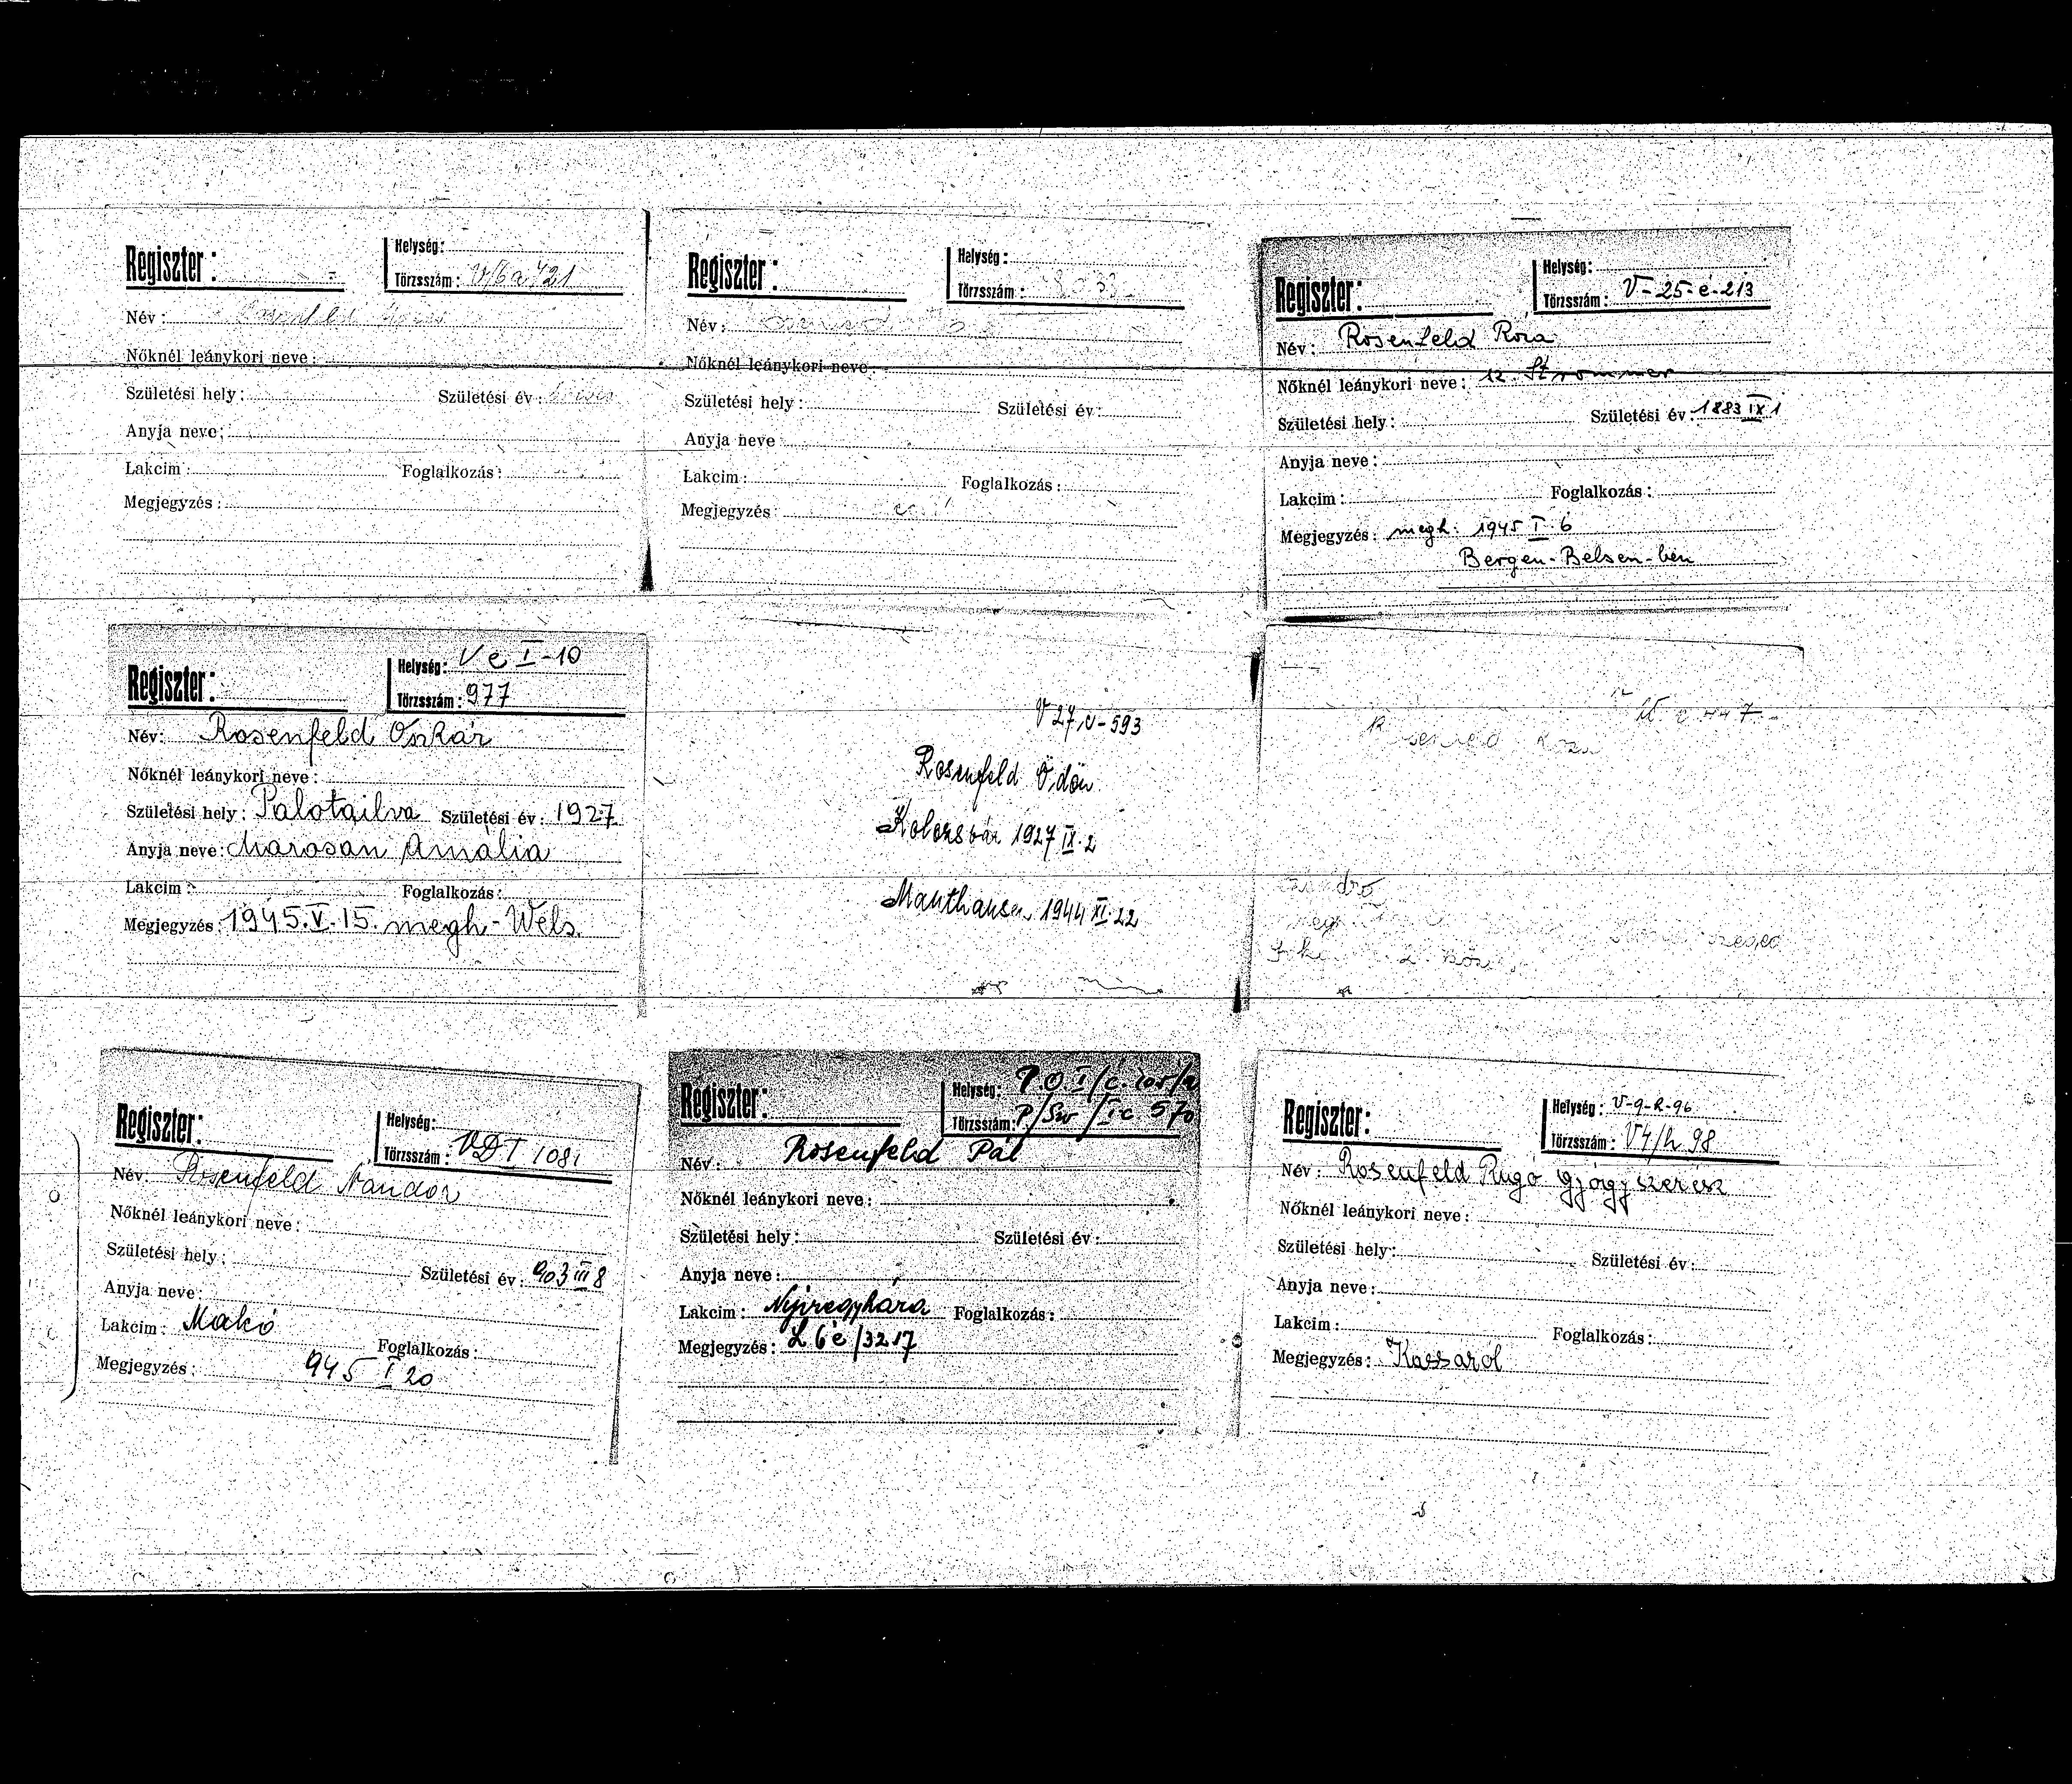 Regiszter:
Helység:
Törzsszám: V/6a 721
Név:
Nőknél leánykori neve:
Születési hely: Születési év:
Anyja neve:
Lakcim: Foglalkozás:
Megjegyzés:
Regiszter:
Helység:
Törzsszám:
Név:
Nőknél leánykori neve:
Születési hely: Születési év:
Anyja neve
Lakcim: Foglalkozás:
Megjegyzés:
Regiszter:
Helység:
Törzsszám: V-25-é-213
Név: Rosenfeld Róza
Nőknél leánykori neve: Strommer
Születési hely: Születési év: 1883 IX 1
Anyja neve:
Lakcim: Foglalkozás:
Megjegyzés: megh. 1945 I. 6
Bergen-Belsen-ben
Regiszter:
Helység: V e I-10
Törzsszám: 977
Név: Rosenfeld Oszkár
Nőknél leánykori neve:
Születési hely: Palotailva Születési év: 1927
Anyja neve: Marosan Amália
Lakcim: Foglalkozás:
Megjegyzés: 1945.V.15. megh-Wels.
Rosenfeld Ödön
Kolozsvár 1927 IX. 2
Mauthausen 1944 XI. 22
Regiszter:
Helység:
Törzsszám: VDT 1081
Név: Rosenfeld Nándor
Nőknél leánykori neve:
Születési hely: Születési év: 903 III 8
Anyja neve:
Lakcim: Makó Foglalkozás:
Megjegyzés: 945 I 20
Regiszter:
Helység:
Törzsszám: 570
Név: Rosenfeld Pál
Nőknél leánykori neve:
Születési hely: Születési év:
Anyja neve:
Lakcim: Nyiregyháza Foglalkozás:
Megjegyzés: L 6 é/3217
Regiszter:
Helység: V-9-k-96
Törzsszám: V4/h 98
Név: Rosenfeld Rugó gyógyszerész
Nőknél leánykori neve:
Születési hely: Születési év:
Anyja neve:
Lakcim: Foglalkozás:
Megjegyzés: Kassaról